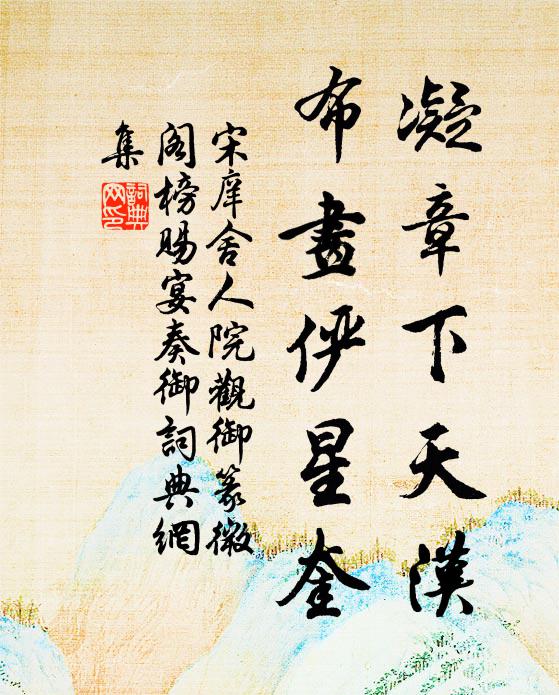 凝章下天漢
布畫俨星奎
宋庠舍人院觀御篆徽
閣榜賜宴奏御詞典網
集
詞典網印